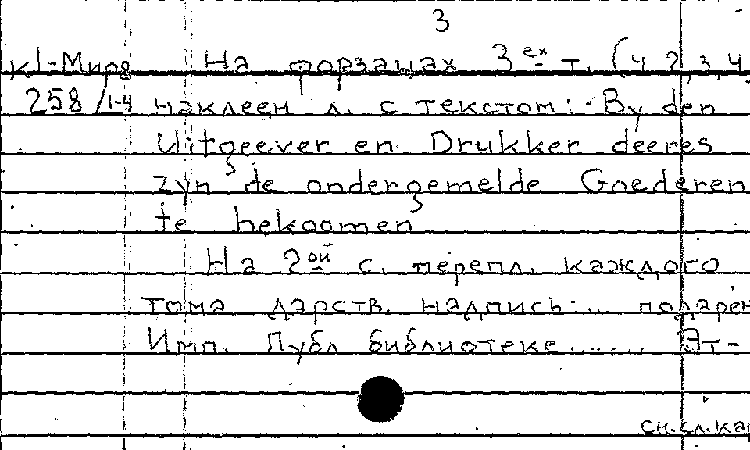 3
На форзацах 3ех т. (ч 2, 3, 4
258/1-4 наклеен л. с текстом: By den
Uitgeever en Drukker deeres
zyn de ondergemelde Goederen
te bekoomen
На 2ой с. перепл. каждого
тома дарств. надпись: ... подарен
Имп. Публ библиотеке ...... Эт-
см.сл.кар